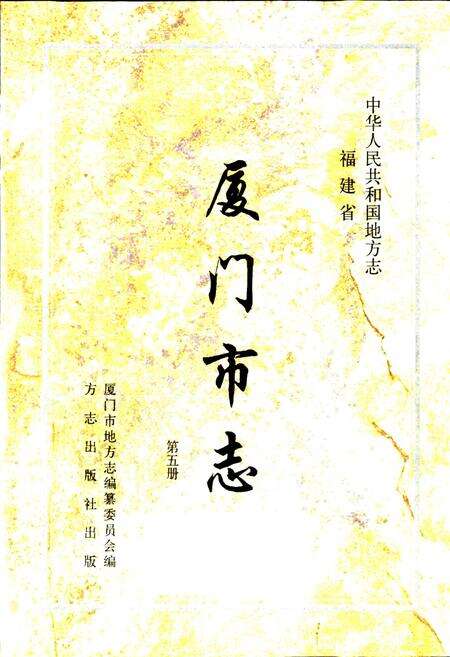 中华人民共和国地方志
福建省
厦门市志
第五册
厦门市地方志编纂委员会编
方志出版社出版